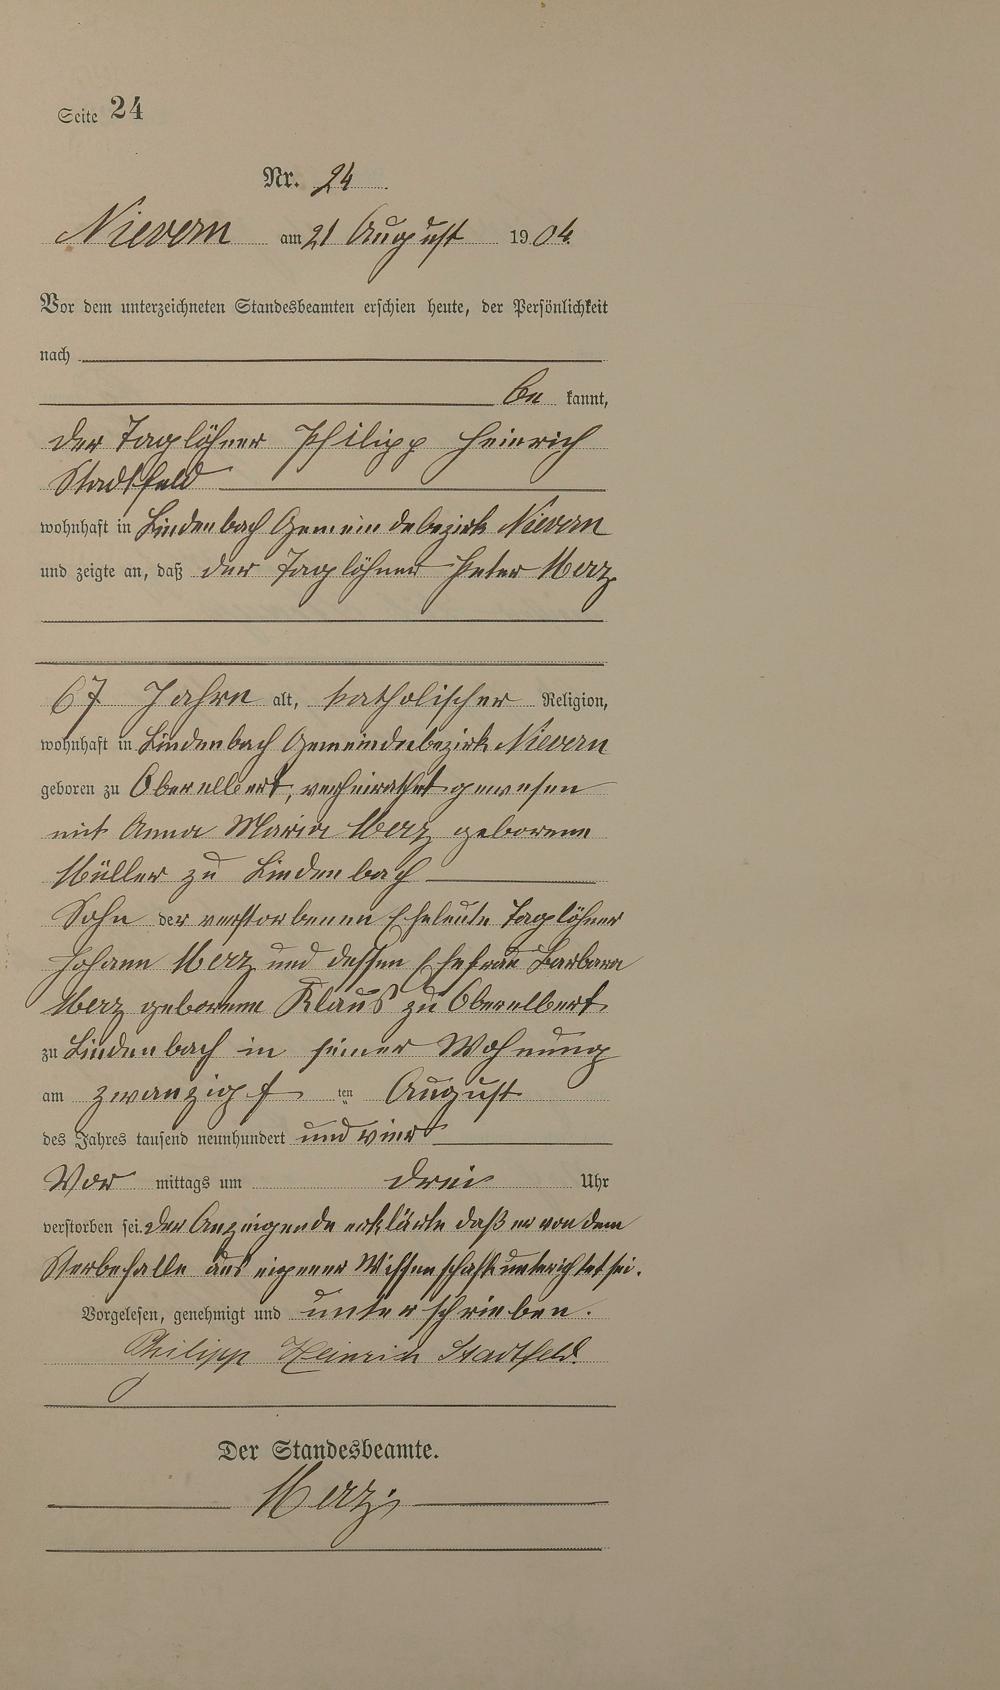 Seite 24
Nr. 24
Nievern am 21 August 1904.
Vor dem unterzeichneten Standesbeamten erschien heute, der Persönlichkeit
nach
be kannt,
der Taglöhner Philipp Heinrich
Stadtfeld
wohnhaft in Lindenbach Gemeindebezirk Nievern
und zeigte an, daß der Taglöhner Peter Merz
67 Jahre alt, katholischer Religion,
wohnhaft in Lindenbach Gemeindebezirk Nievern
geboren zu Oberelbert, verheirathet gewesen
mit Anna Maria Merz geborene
Müller zu Lindenbach
Sohn der verstorbenen Eheleute Taglöhner
Johann Merz und dessen Ehefrau Barbara
Merz geborene Klaus zu Oberelbert
zu Lindenbach in seiner Wohnung
am zwanzigs ten August
des Jahres tausend neunhundert und vier
Vor mittags um drei Uhr
verstorben sei. Der Anzeigende erklärte daß er von dem
Sterbefalle aus eigener Wissenschaft unterichtet sei.
Vorgelesen, genehmigt und unterschrieben.
Philipp Heinrich Stadtfeld.
Der Standesbeamte.
Merz.